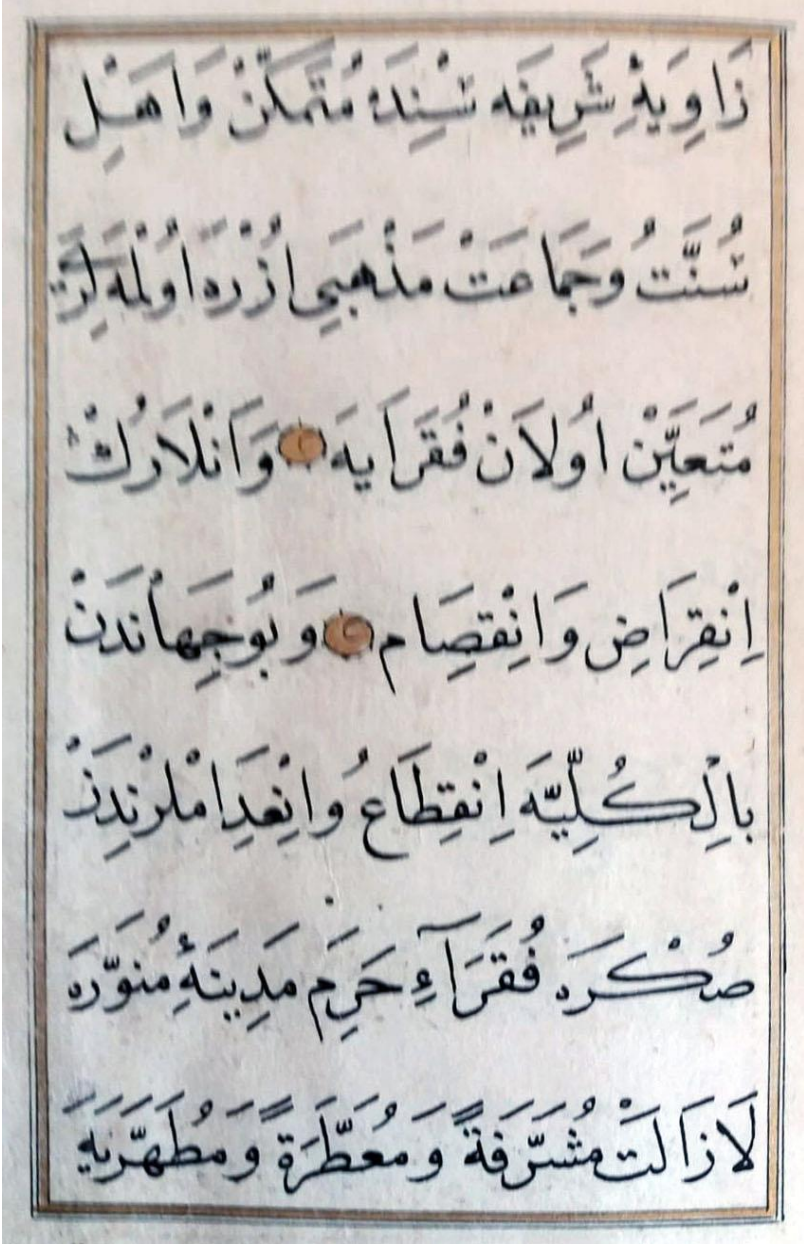 زَاوِيَۀِ شَرِيفَه سَنِدَه مُتَمَكِّنْ وَاَهْلِ
سُنَّتُ وَجَمَاعَتْ مَذْهَبِي اُزْرَه اُولْمَه لَرِيلَه
مُتَعَيِّنْ اُولَانْ فُقَرَايَه وَاَنْلَارُكْ
اِنْقِرَاضِ وَانْقِصَام وَبُوجِهَانْدَنْ
بِالْكُلِّيَّه اِنْقِطَاعُ وَانْعِدَامْلَرْنْدَنْ
صُكْرَه فُقَرَآءِ حَرَمِ مَدِينَۀِ مُنَوَّرَه
لَازَالَتْ مُشَرَّفَةً وَمُعَطَّرَةً وَمُطَهَّرَيَه